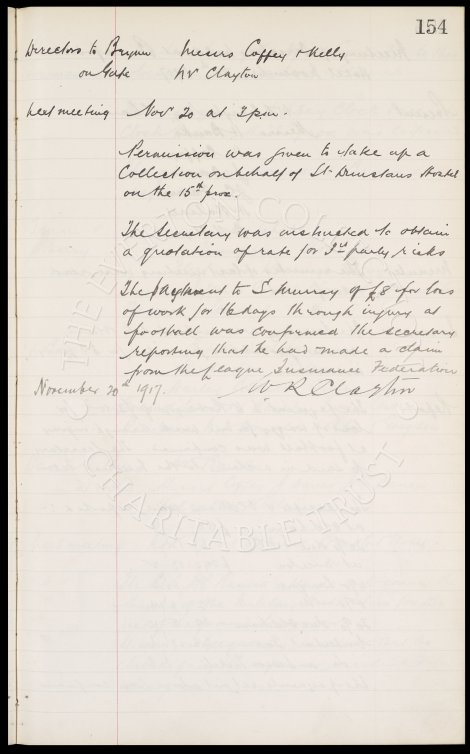 154
Directors to Messrs Coffey & Kelly
on Gate Mr Clayton
Next meeting Nov 20 at 3pm.
Permission was given to take up a
Collection on behalf of St Dunstans Hostel
on the 15th prox.
The Secretary was instructed to obtain
a quotation of rate for 3rd party risks
The payment to S. Murray of £8 for loss
of work for 16 days through injury at
football was confirmed the Secretary
reporting that he had made a claim
from the League Insurance Federation
November 20th 1917. W R Clayton
THE EVERTON COLLECTION
CHARITABLE TRUST